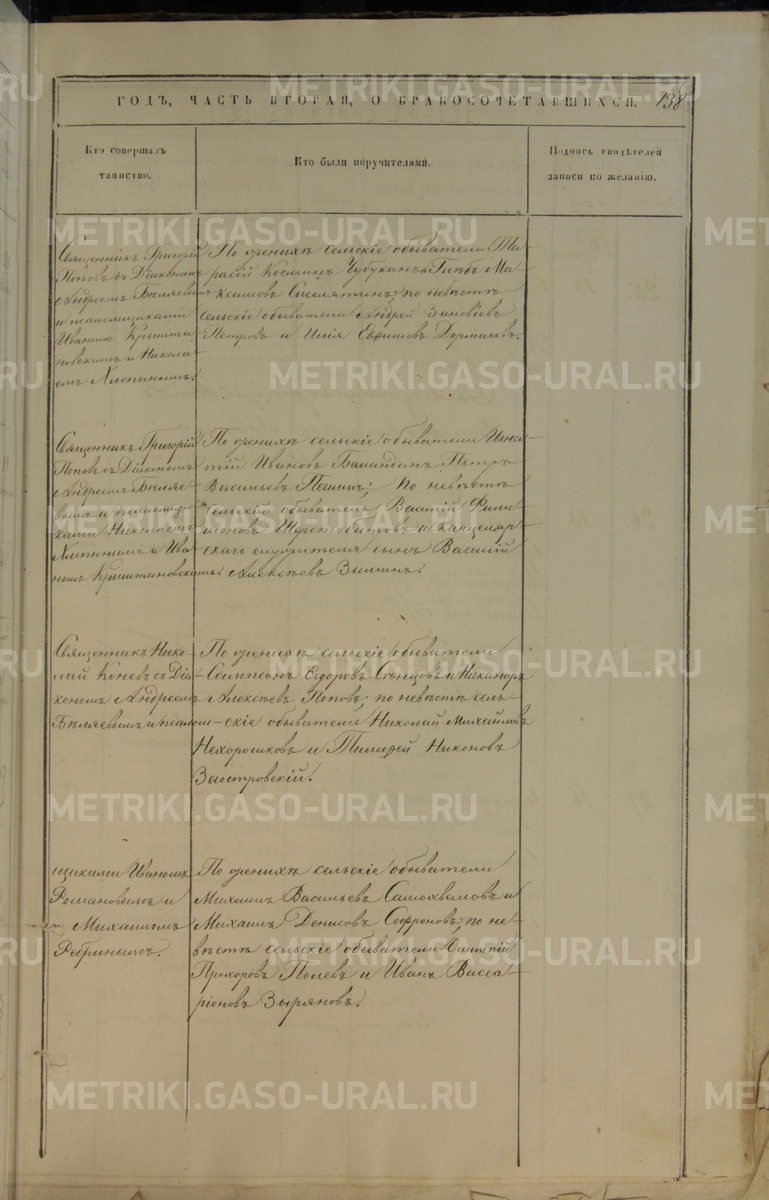 138
ГОДЪ, ЧАСТЬ ВТОРАЯ, О БРАКОСОЧЕТАВШИХСЯ.
Кто совершалъ
таинство.
Кто были поручителями.
Подпись свидѣтелей
записи по желанію.
Священникъ Григорій
Поповъ съ Діакономъ
Андреемъ Бѣляевымъ
и псаломщиками
Иваномъ Крыжта-
новскимъ и Никола-
емъ Хлопинымъ.
По женихѣ сельскіе обыватели Та-
расій Косминъ Чубукинъ Глѣбъ Ма-
ксимовъ по невѣстѣ
сельскіе обыватели Андрей Зиновіевъ
Петровъ и Илія Евфимовъ Дормачевъ.
Священникъ Григорій
Поповъ съ Діакономъ
Андреемъ Бѣляе-
вымъ и псаломщи-
ками Николаемъ
Хлопинымъ и Ива-
номъ Крыжтановскимъ.
По женихѣ сельскіе обыватели Игна-
тій Ивановъ Баландинъ Петръ
Васильевъ Пешинъ; По невѣстѣ
сельскій обыватель Василій Фили-
моновъ Шерстобитовъ и канцеляр-
скаго служителя сынъ Василій
Алексѣевъ Зиминъ.
Священникъ Нико-
лай Коневъ съ Діа-
кономъ Андреемъ
Бѣляевымъ и псалом-
По женихѣ сельскіе обыватели
Сампсонъ Ѳедоровъ и Никаноръ
Алексѣевъ Поповъ; по невѣстѣ сель-
скіе обыватели Николай Михайловъ
Нехорошковъ и Тимофей Никоновъ
Заостровскій.
щиками Иваномъ
Романовымъ и
Михаиломъ
Ребринымъ.
По женихѣ сельскіе обыватели
Михаилъ Васильевъ Самохваловъ и
Михаилъ Денисовъ Софроновъ; по не-
вѣстѣ сельскіе обыватели
Прохоровъ Полевъ и Иванъ Висса-
ріоновъ Зыряновъ.
METRIKI.GASO-URAL.RU